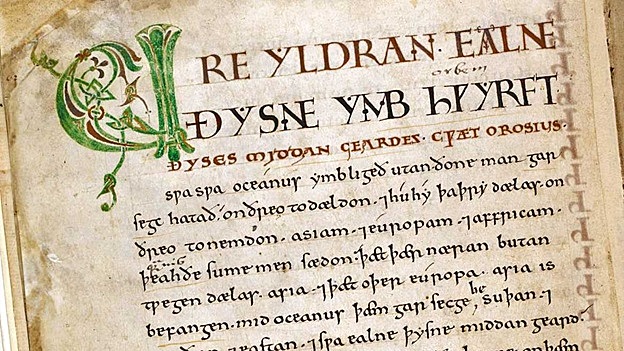 URE YLDRAN· EALNE
orbem
ÐYSNE YMB HWYRFT
ÐYSES MIDDAN GEARDES· CWÆT OROSIUS·
swa swa oceanus ymbligeð utan· ðone man gar
segc hatað· on ðreo todældon· ⁊ hu hy þa þry dælas· on
ðreo tonemdon· asiam· ⁊ európam· ⁊ affricam·
þeah ðe sume men sædon· þæt þær næran butan
twegen dælas· asia· ⁊ þæt oþer európa· asia is
be
befangen· mid oceanus þæm garsecge suþan· ⁊
eastan· ⁊ swa ealne þysne middan geard·